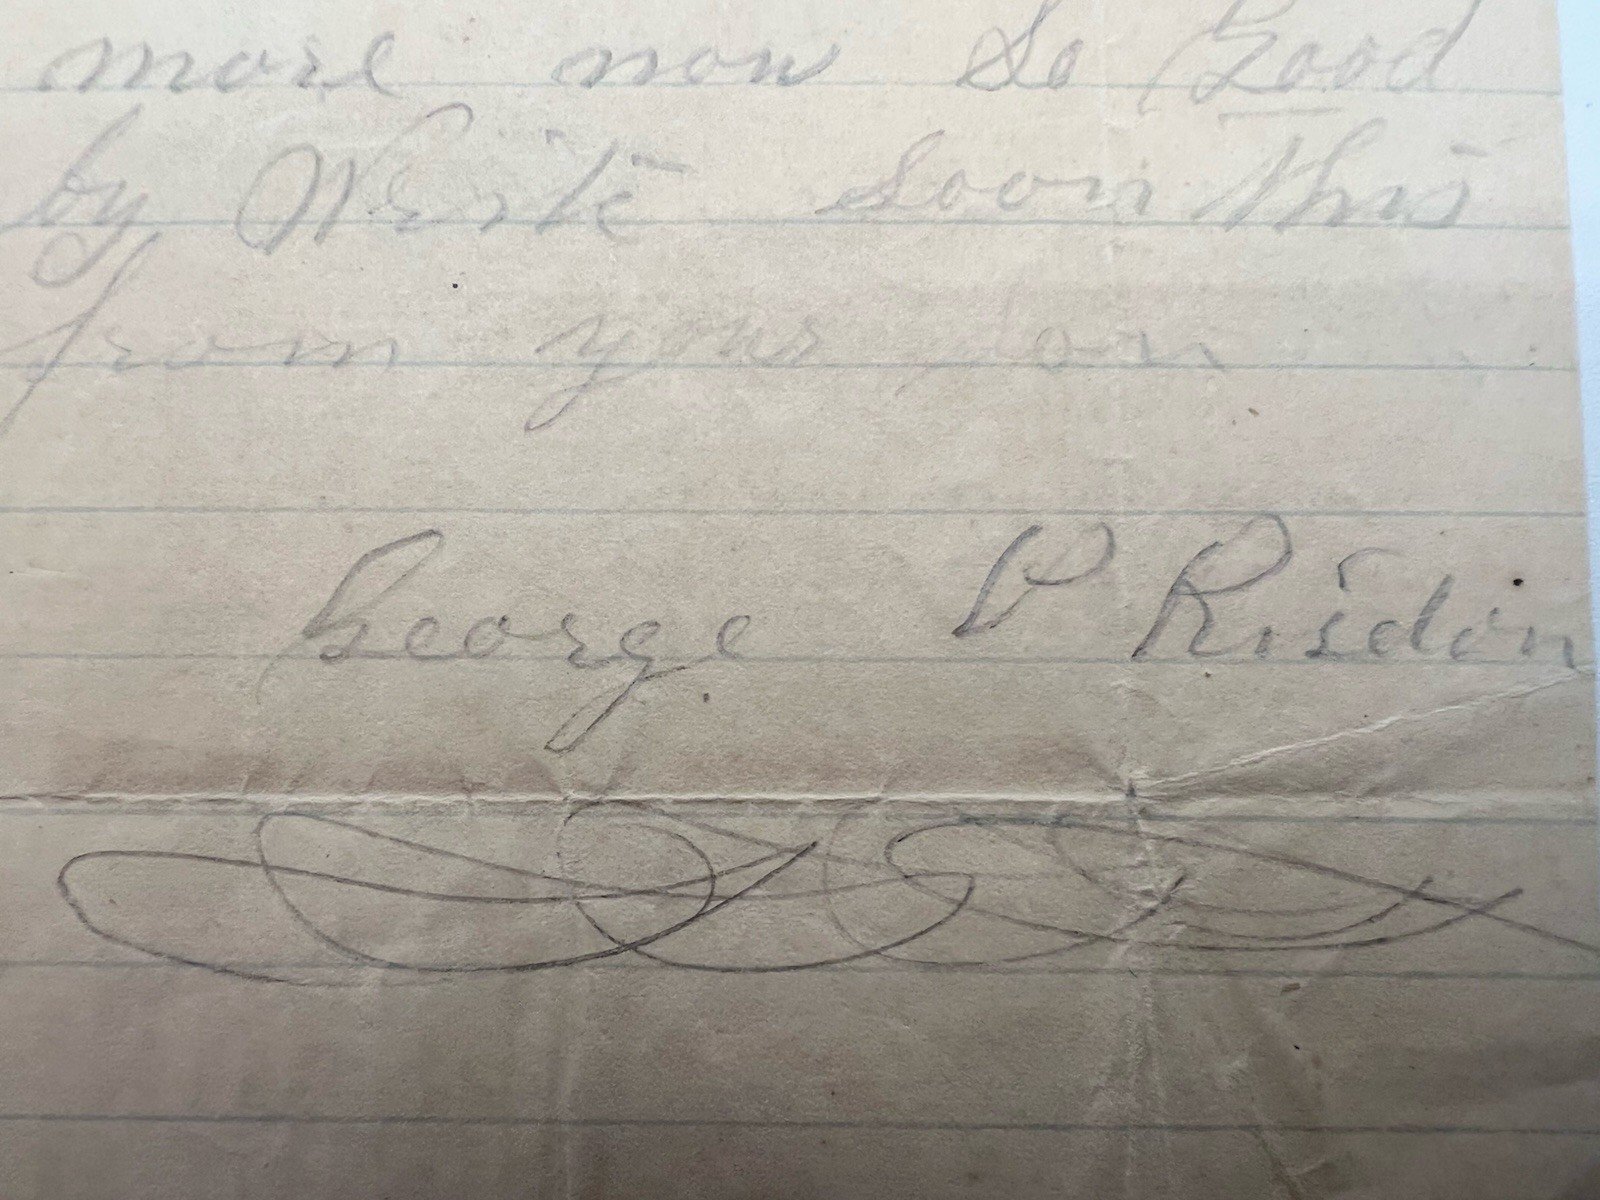 more now So Good
by Write Soon this
from your son
George P Risdon